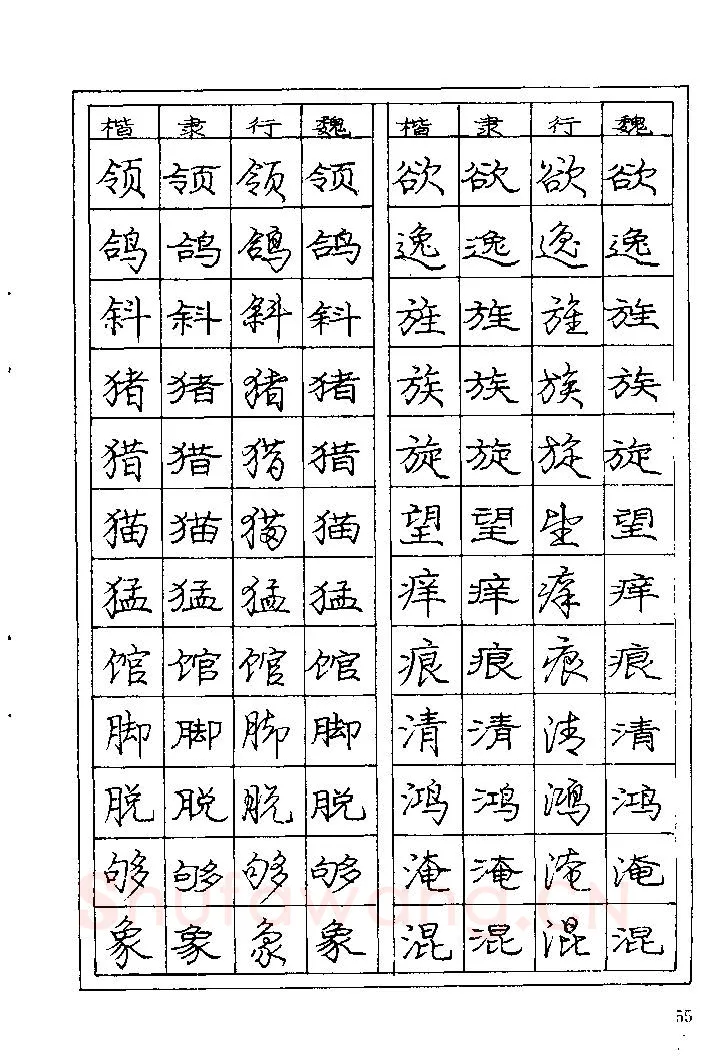 楷 隶 行 魏 楷 隶 行 魏
领 领 领 领 欲 欲 欲 欲
鸽 鸽 鸽 鸽 逸 逸 逸 逸
斜 斜 斜 斜 旌 旌 旌 旌
猪 猪 猪 猪 族 族 族 族
猎 猎 猎 猎 旋 旋 旋 旋
猫 猫 猫 猫 望 望 望 望
猛 猛 猛 猛 痒 痒 痒 痒
馆 馆 馆 馆 痕 痕 痕 痕
脚 脚 脚 脚 清 清 清 清
脱 脱 脱 脱 鸿 鸿 鸿 鸿
够 够 够 够 淹 淹 淹 淹
Shufawang.CN
象 象 象 象 混 混 混 混
55